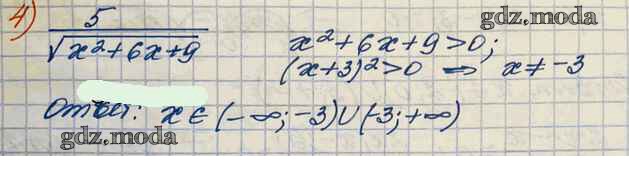 4) 5/√(x²+6x+9)
gdz.moda
x²+6x+9>0;
(x+3)²>0 ⇒ x≠-3
Ответ: x∈(-∞;-3)∪(-3;+∞)
gdz.moda